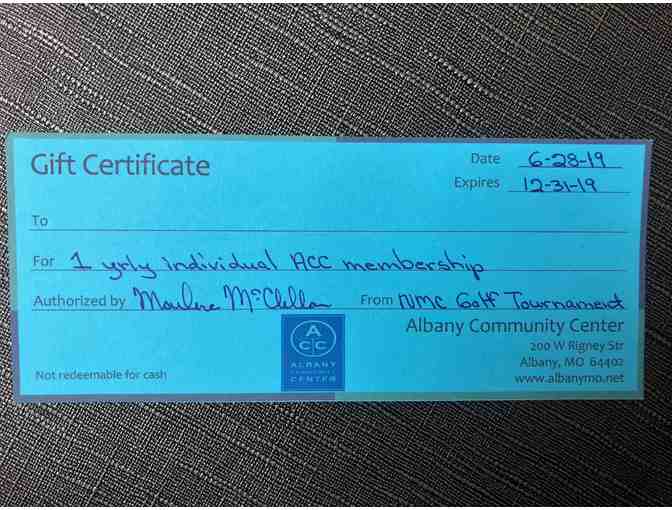 Gift Certificate
Date 6-28-19
Expires 12-31-19
To
For 1 yrly individual ACC membership
Authorized by Marlene McClellan From NMC Golf Tournament
Albany Community Center
200 W Rigney Str
Albany, MO 64402
www.albanymo.net
Not redeemable for cash
ACC
ALBANY
COMMUNITY
CENTER